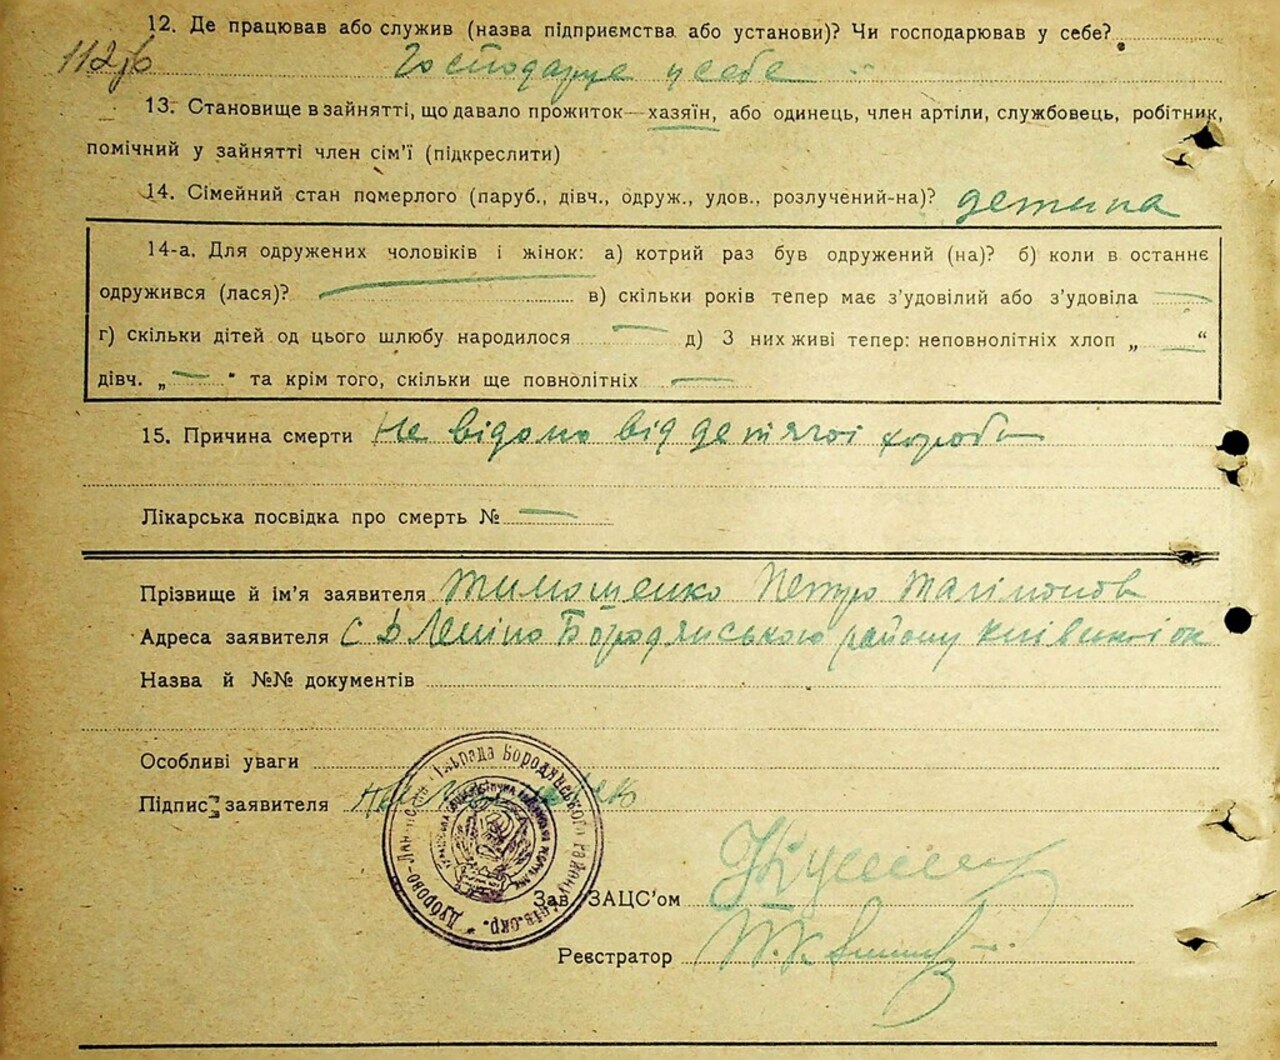 12. Де працював або служив (назва підприємства або установи)? Чи господарював у себе?
112 Господарує у себе
13. Становище в зайнятті, що давало прожиток—хазяїн, або одинець, член артіли, службовець, робітник,
помічний у зайнятті член сім'ї (підкреслити)
14. Сімейний стан померлого (паруб., дівч., одруж., удов., розлучений-на)? детина
14-а. Для одружених чоловіків і жінок: а) котрий раз був одружений (на)? б) коли в останнє
одружився (лася)? в) скільки років тепер має з'удовілий або з'удовіла
г) скільки дітей од цього шлюбу народилося д) З них живі тепер: неповнолітніх хлоп „ “
дівч. „ “ та крім того, скільки ще повнолітніх
15. Причина смерти Не відомо від детячої хороби
Лікарська посвідка про смерть №
Прізвище й ім'я заявителя Тимошенко Петро
Адреса заявителя С Д Леніно Бородянського району Київської ок
Назва й №№ документів
Особливі уваги
Підпис заявителя
Бородянського району Київ. окр. * Дуброво-Ленінська сільрада
Зав ЗАЦС'ом
Реєстратор